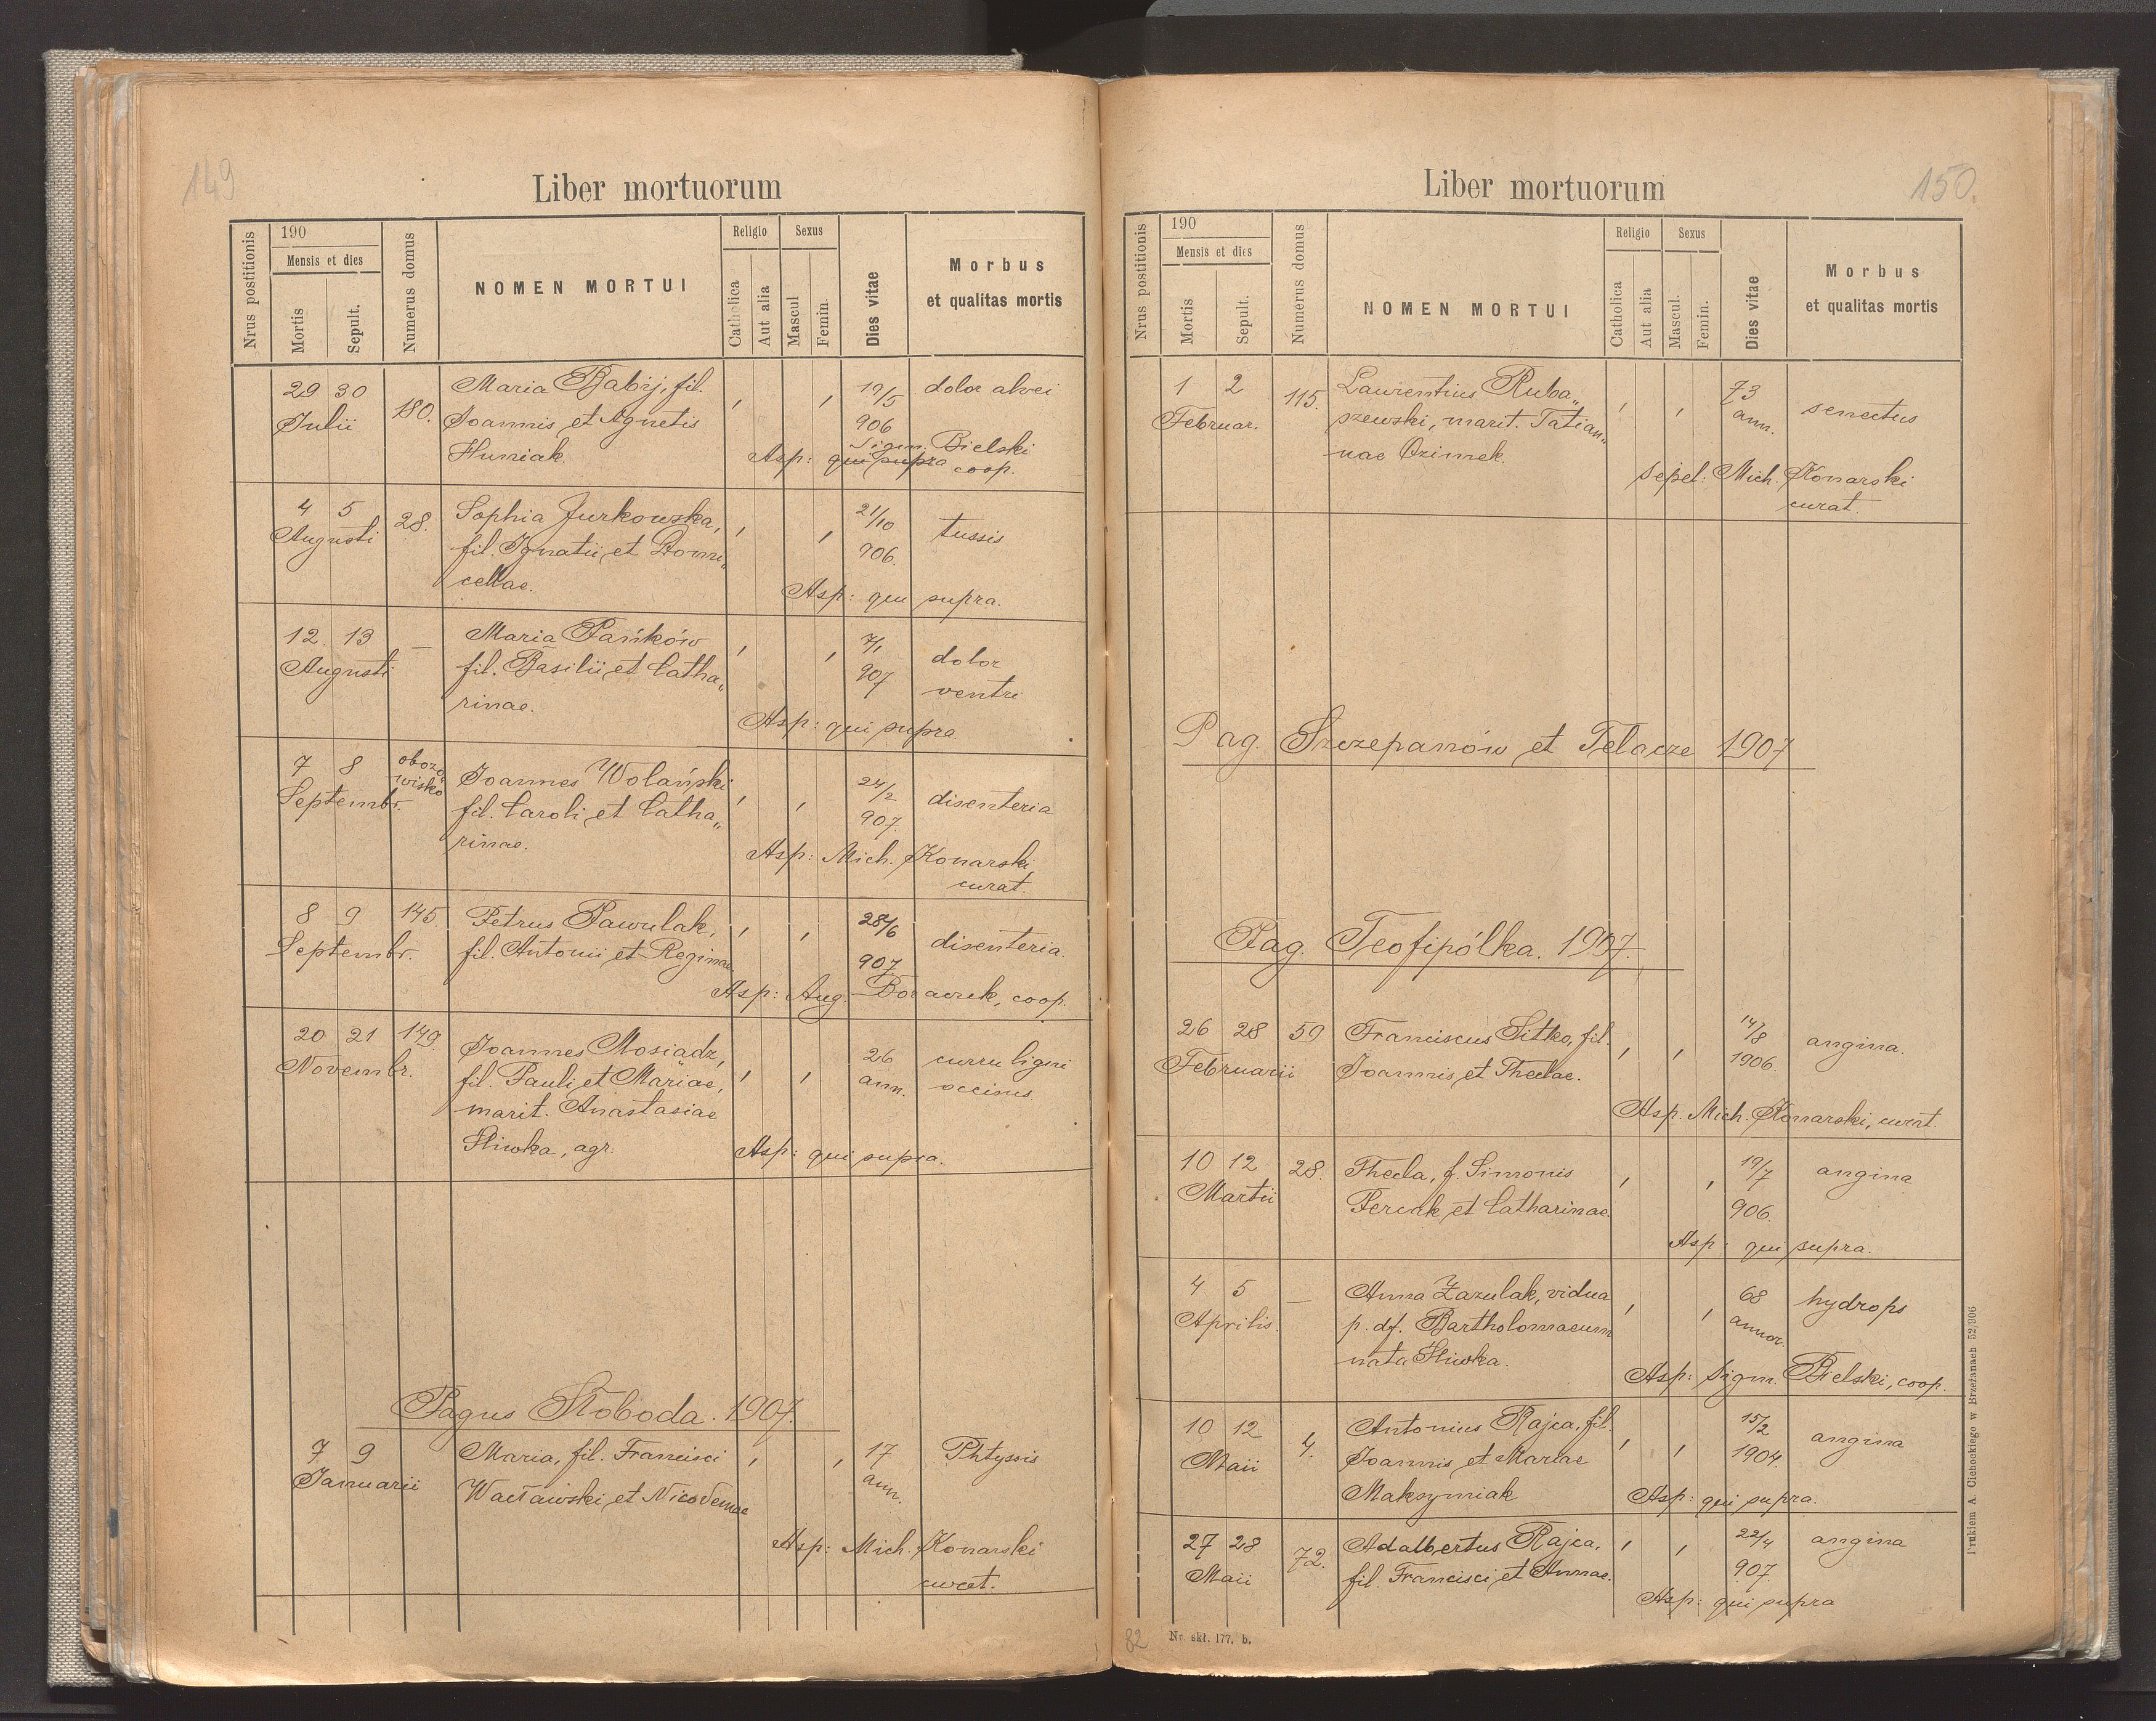 149
Liber mortuorum
Nrus postitionis
190
Mensis et dies
Mortis
Sepult.
Numerus domus
NOMEN MORTUI
Religio
Catholica
Aut alia
Sexus
Mascul
Femin.
Dies vitae
Morbus
et qualitas mortis
29 30 Maria Babij, fil. , , 19/5 dolor alvei
Julii 180. Joannis et Agnetis 906
Huniak. Asp: qui supra Sigm. Bielski
coop.
4 5 28. Sophia Jurkowska, , , 21/10 tussis
Augusti fil. Ignatii et Domi„ 906.
cellae. Asp: qui supra.
12 13 — Maria Pańków , , 7/1 dolor
Augusti fil. Basilii et Catha„ 907 ventri
rinae. Asp: qui supra.
7 8 obozo Joannes Wolański , , 24/2 disenteria
Septembr. wisko fil. Caroli et Catha„ 907.
rinae. Asp: Mich. Konarski
curat.
8 9 145. Petrus Pawulak, , , 28/6 disenteria.
Septembr. fil. Antonii et Reginae 907
Asp: Aug. coop.
20 21 149. Joannes Mosiądz, , , 26 curru ligni
Novembr. fil. Pauli et Mariae, ann. occisus.
marit. Anastasiae
Śliwka, agr. Asp: qui supra.
Pagus Słoboda. 1907.
7 9 Maria, fil. Francisci , , 17 Phtyssis
Januarii Wacławski et Nicodemae ann.
Asp: Mich. Konarski
curat.
150.
Liber mortuorum
Nrus postitionis
190
Mensis et dies
Mortis
Sepult.
Numerus domus
NOMEN MORTUI
Religio
Catholica
Aut alia
Sexus
Mascul.
Femin.
Dies vitae
Morbus
et qualitas mortis
1 2 115. Laurentius Ruba„ , , 73 senectus
Februar. szewski, marit. Tatian„ ann.
nae Ozimek.
Sepel: Mich. Konarski
curat.
Pag. Szczepanów et Telacze 1907
Pag. Teofipólka. 1907.
26 28 59 Franciscus Sitko, fil. , , 14/8 angina.
Februarii Joannis et Theclae. 1906.
Asp. Mich. Konarski, curat.
10 12 28. Thecla, f. Simonis , , 19/7 angina
Martii et Catharinae. 906.
Asp: qui supra.
4 5 — Anna Zazulak, vidua , , 68 hydrops
Aprilis. p. df. Bartholomaeum annor.
nata Śliwka.
Asp: Sigm. Bielski, coop.
10 12 4. Antonius Rajca, fil. , , 15/2 angina
Maii Joannis et Mariae 1904.
Maksymiak Asp: qui supra.
27 28 72. Adalbertus Rajca, , , 22/4 angina
Maii fil. Francisci et Annae. 907.
Asp: qui supra
82 Nr. skł. 177. b.
Drukiem A. Cichockiego w Brzeżanach 52/906